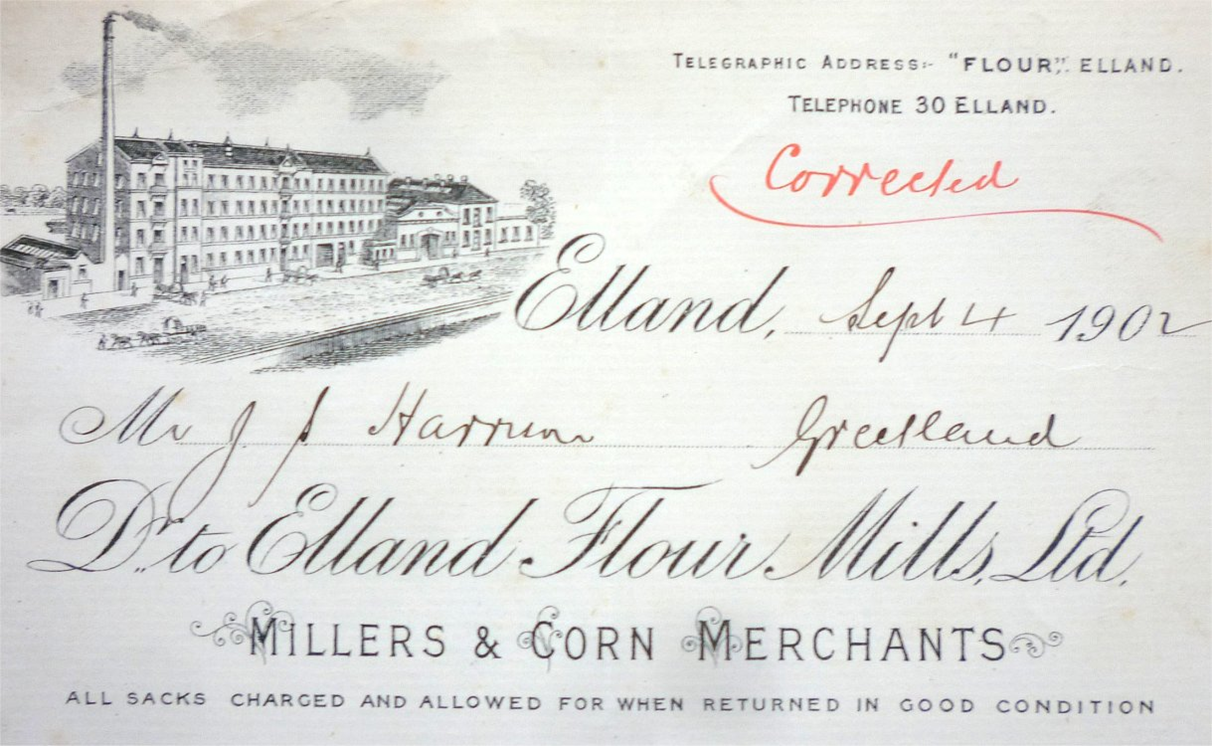 TELEGRAPHIC ADDRESS:- "FLOUR", ELLAND.
TELEPHONE 30 ELLAND.
Corrected
Elland, Sept 4 1902
Mr J S Harrison Greetland
Dr. to Elland Flour Mills, Ltd.
MILLERS & CORN MERCHANTS
ALL SACKS CHARGED AND ALLOWED FOR WHEN RETURNED IN GOOD CONDITION